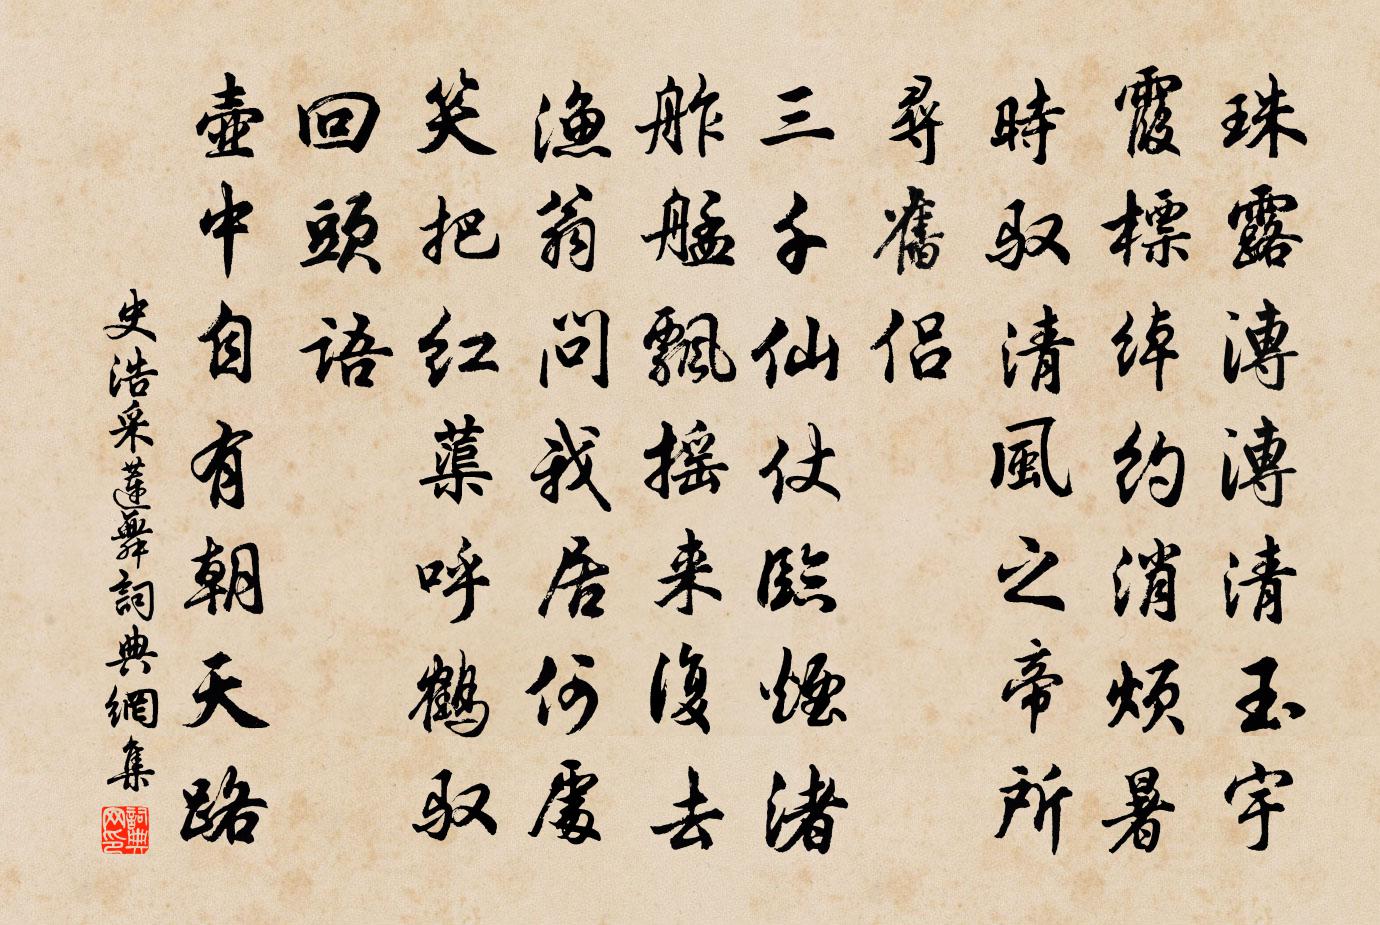 珠露漙漙清玉宇
霞標綽約消煩暑
時馭清風之帝所
尋舊侶
三千仙仗臨煙渚
舴艋飄搖来復去
漁翁問我居何處
笑把紅蕖呼鶴馭
回頭語
壺中自有朝天路
史浩采蓮舞詞典網集
詞典网印